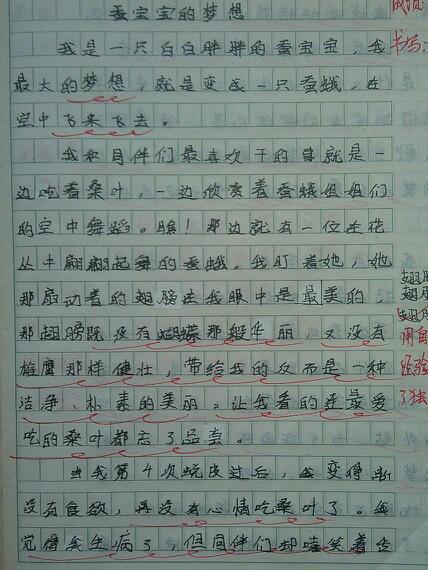 蚕宝宝的梦想
我是一只白白胖胖的蚕宝宝,我
最大的梦想,就是变成一只蚕蛾,在
空中飞来飞去。
我和同伴们最喜欢干的事就是一
边吃着桑叶,一边欣赏着蚕蛾姐姐们
的空中舞蹈。瞧!那边就有一位在花
丛中翩翩起舞的蚕蛾。我盯着她,她
那扇动着的翅膀在我眼中是最美的
那翅膀既没有蝴蝶那般华丽,又没有
雄鹰那样健壮,带给我的反而是一种
洁净、朴素的美丽。让我看的连最爱
吃的桑叶都忘了品尝。
当我第4次蜕皮过后,我变得渐
没有食欲,再没有心情吃桑叶了。我
觉得我生病了,但同伴们却嘻笑着告
书写:
翅膀
用自
经验
了独